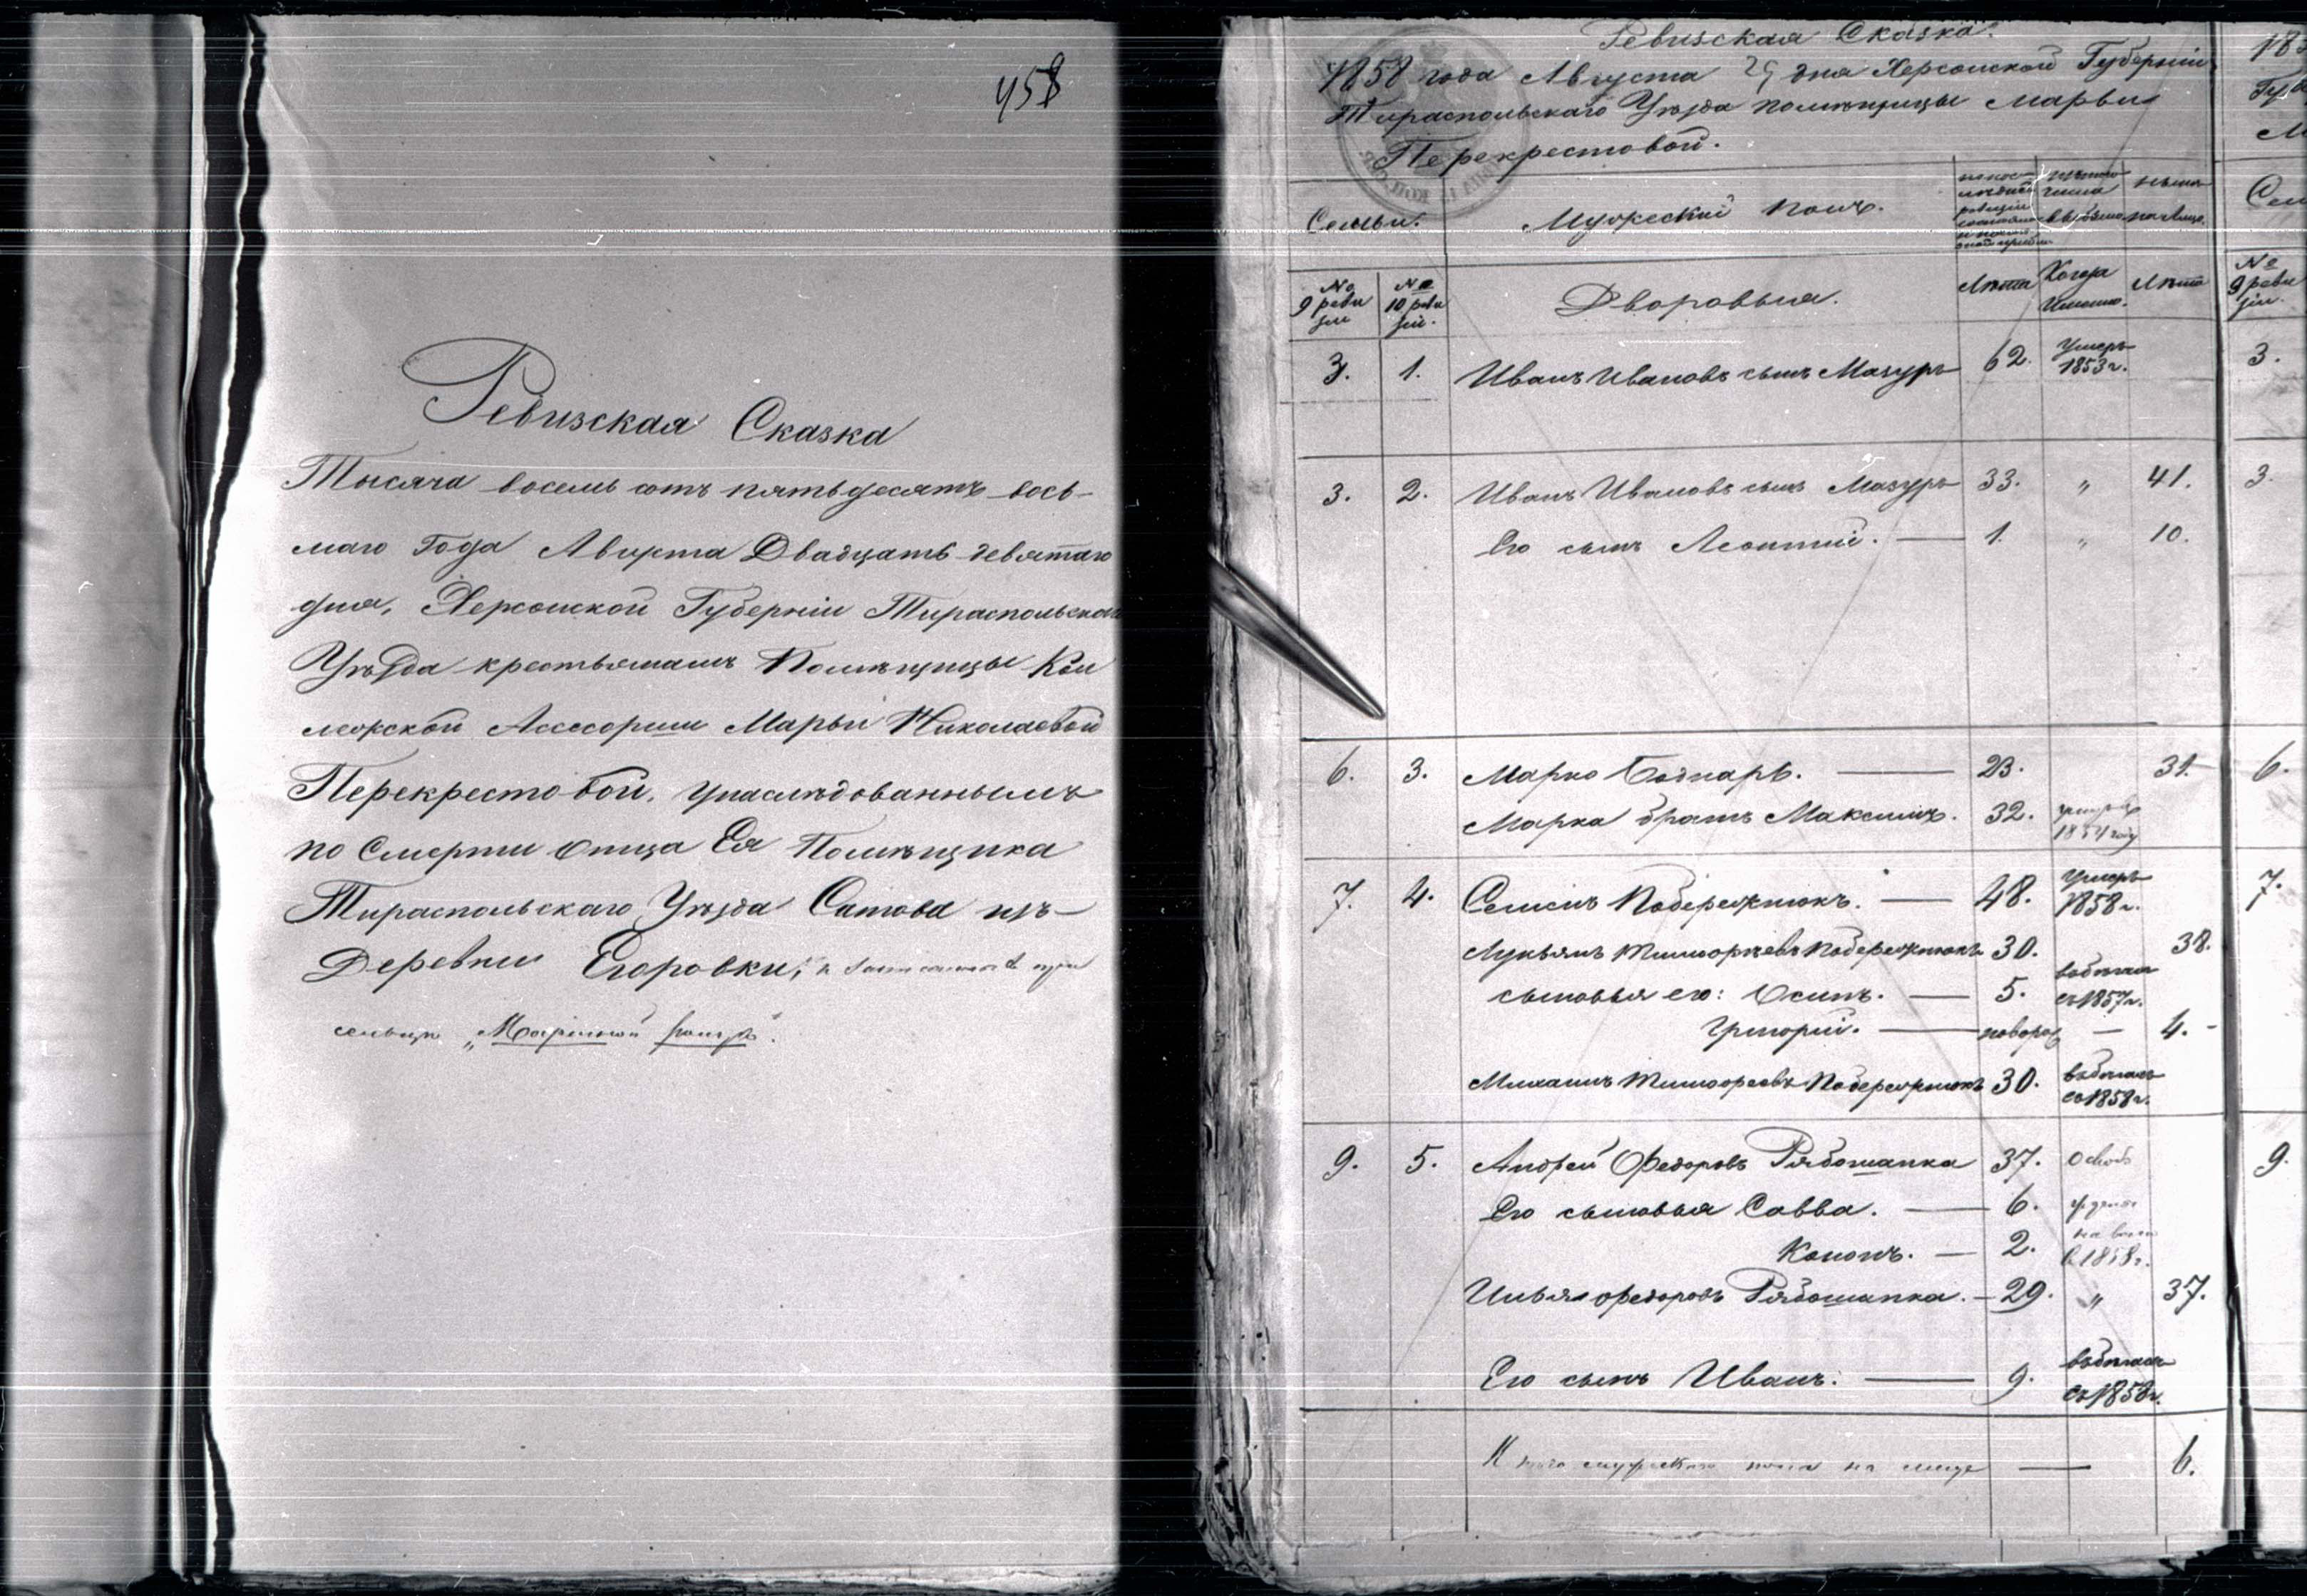 458
Ревизская Сказка
Тысяча восемь сотъ пятьдесятъ вось-
маго Года Августа Двадцать девятаго
дня, Херсонской Губерніи Тираспольскаго
Уѣзда крестьянамъ Помѣщицы Кол
лежской Ассесорши Марьи Николаевой
Перекрестовой, унаслѣдованнымъ
по Смерти отца Ея Помѣщика
Тираспольскаго Уѣзда Сатова изъ
Деревни Егоровки, и
сельцѣ „
Ревизская Сказка.
1858 года Августа 29 дня Херсонской Губерніи
Тираспольскаго Уѣзда помѣщицы Марьи
Перекрестовой.
Семьи. Мужеский полъ. изъ того числа выбыло нынѣ на лицо.
№ 9 реви зіи № 10 реви зіи. Дворовыя. Лѣта Когда именно. Лѣта № 9 реви зіи.
3. 1. Иванъ Ивановъ сынъ Мазуръ 62. Умеръ 1853 г. 3.
3. 2. Иванъ Ивановъ сынъ Мазуръ 33. „ 41. 3.
Его сынъ Леонтій. — 1. „ 10.
6. 3. Марко Боднарь. — 23. 31. 6.
Марка братъ Максимъ. 32. умеръ 1854 году
7. 4. Семенъ Побережнюкъ. — 48. Умеръ 1858 г. 7.
Лукьянъ Тимофѣевъ Побережнюкъ 30. 38.
сыновья его: Осипъ. — 5. въ бѣгахъ съ 1857 г.
Григорій. — новорож — 4.
Михаилъ Тимофеевъ Побережнюкъ 30. въ бѣгахъ съ 1858 г.
9. 5. Андрей Федоровъ Рябошапка 37. 9.
Его сыновья Савва. — 6.
Кононъ. — 2. на волю в 1858 г.
Илья Федоровъ Рябошапка. — 29. „ 37.
Его сынъ Иванъ. — 9. въ бѣгахъ съ 1858 г.
Итого мужскаго пола на лице — 6.